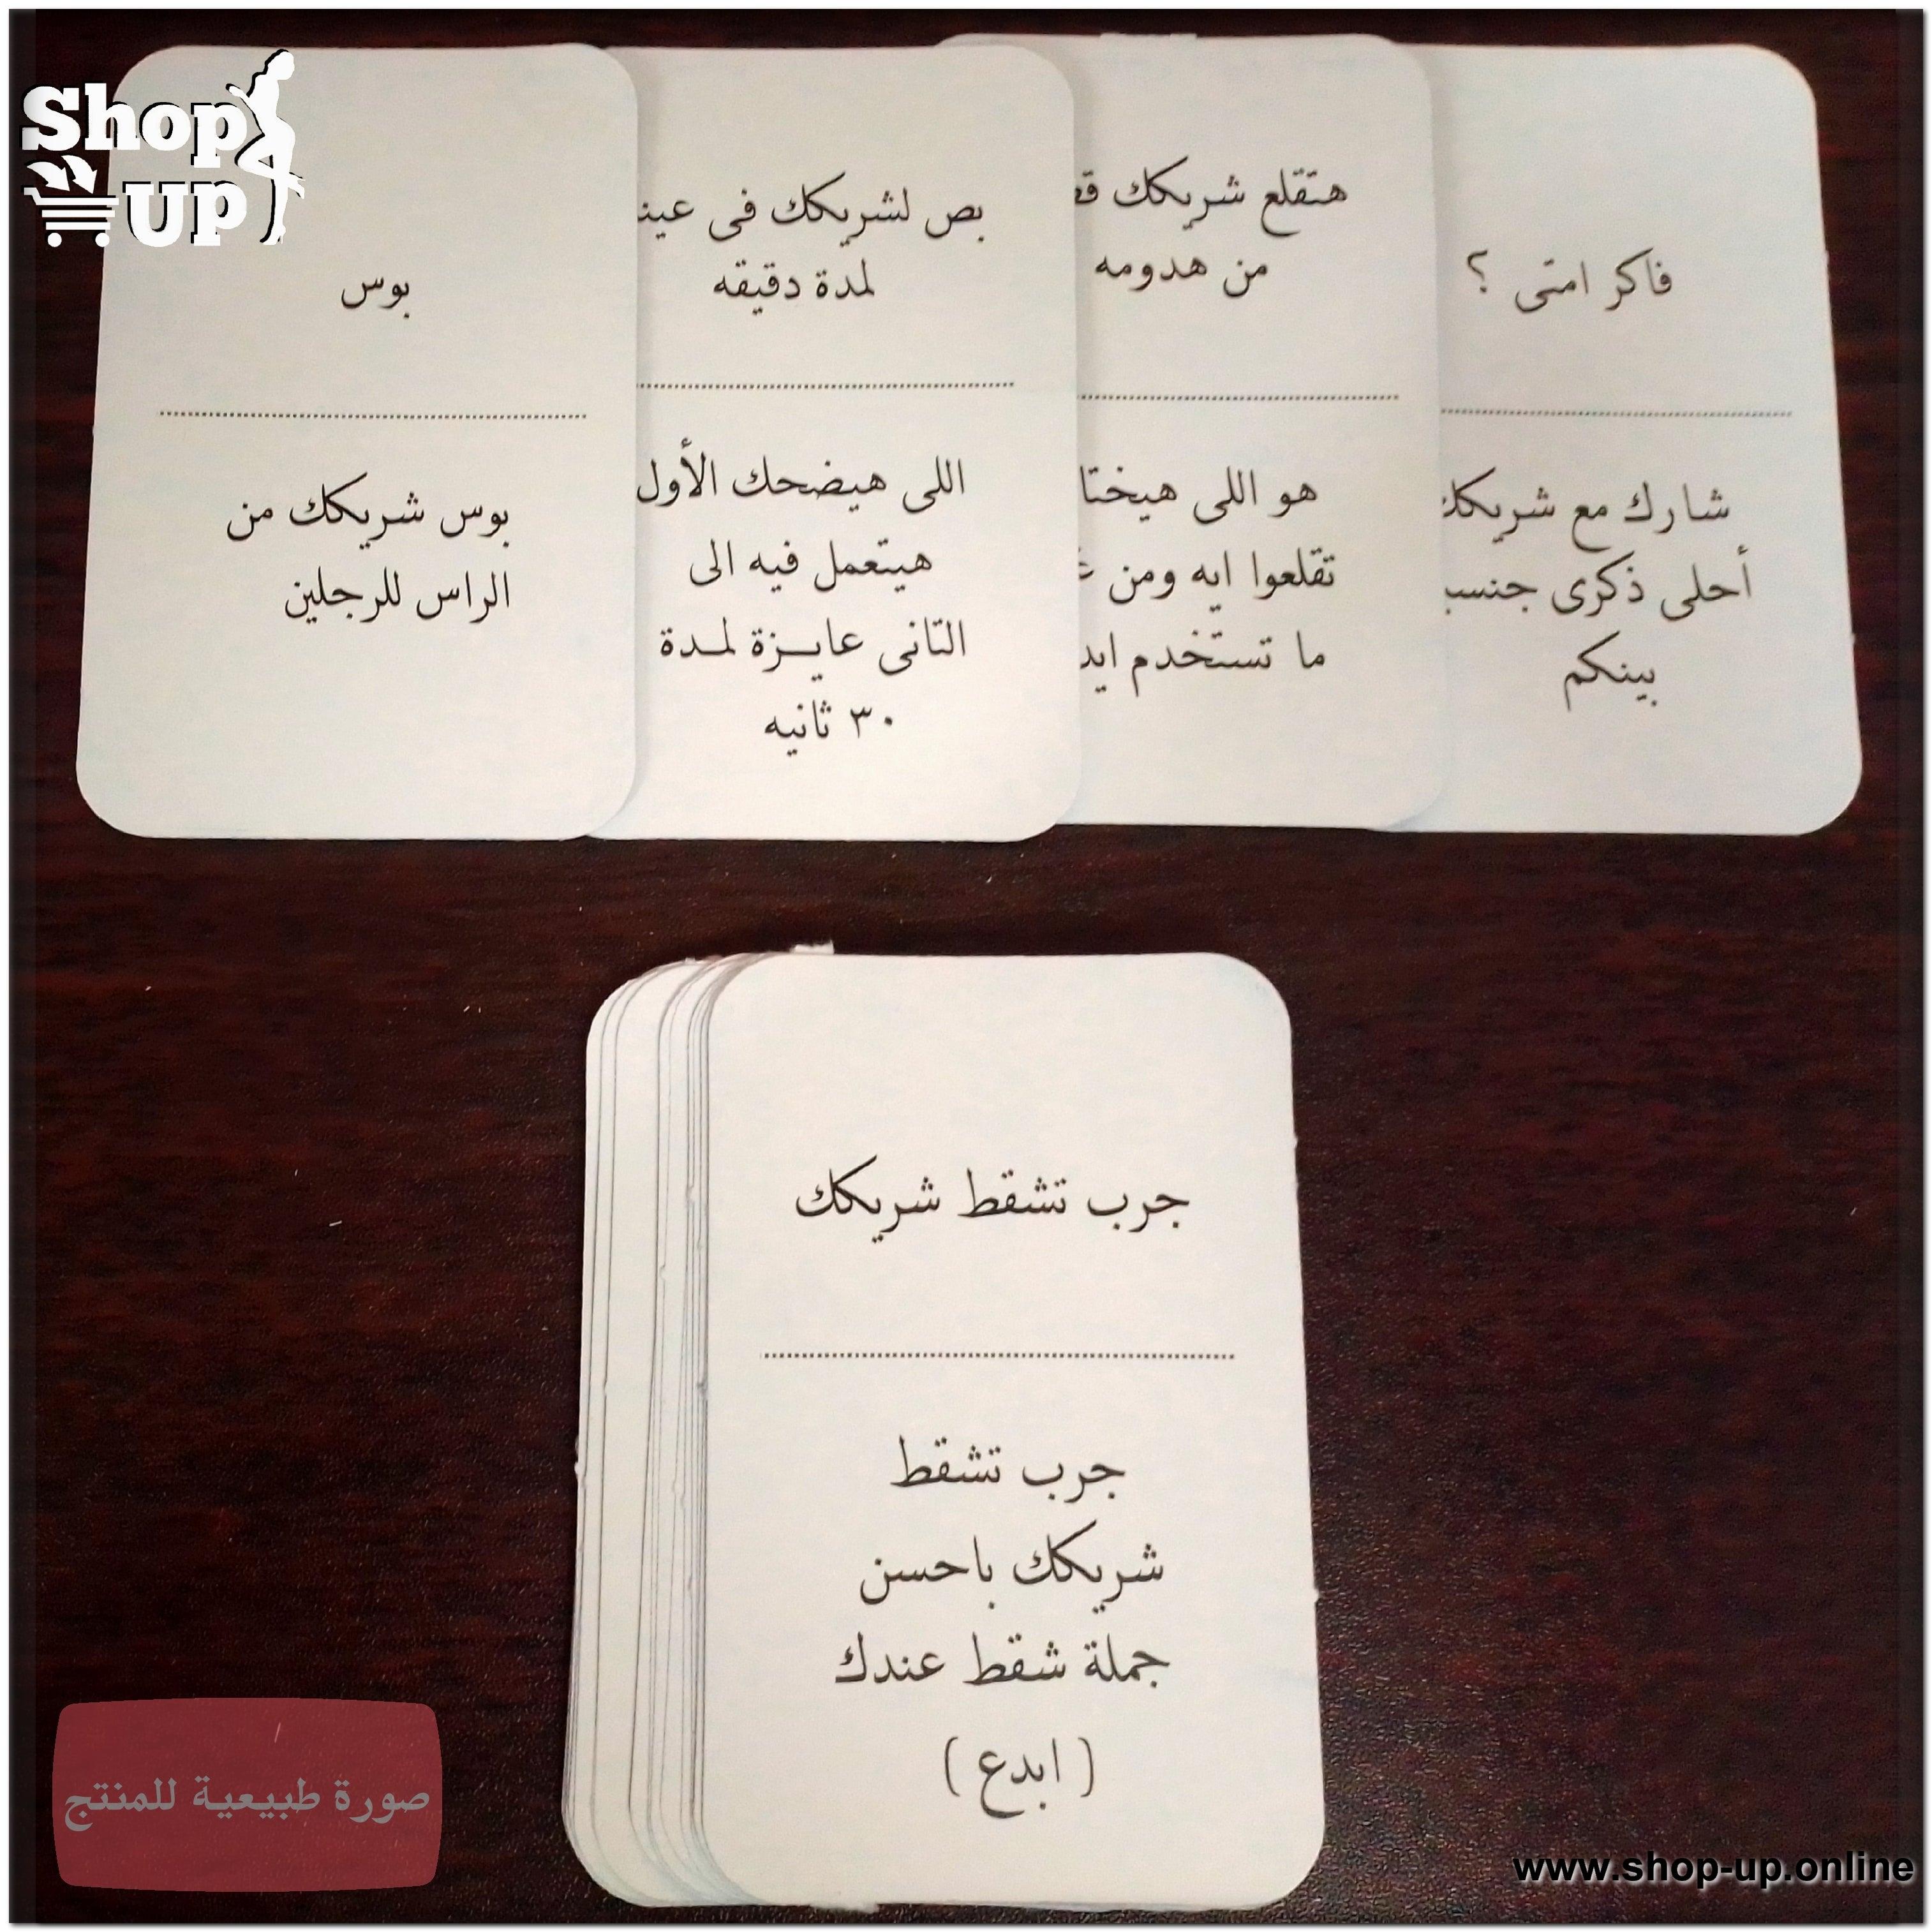 Shop
UP
بوس
بوس شريكك من
الراس للرجلين
بص لشريكك فى
لمدة دقيقه
اللى هيضحك الأول
هيتعمل فيه الى
التانى عايــزة لمـدة
٣٠ ثانيه
هتقلع شريكك
من هدومه
هو اللى
تقلعوا ايه ومن
ما تستخدم
فاكر امتى ؟
شارك مع شريكك
أحلى ذكرى
بينكم
جرب تشقط شريكك
جرب تشقط
شريكك باحسن
جملة شقط عندك
( ابدع )
صورة طبيعية للمنتج
www.shop-up.online